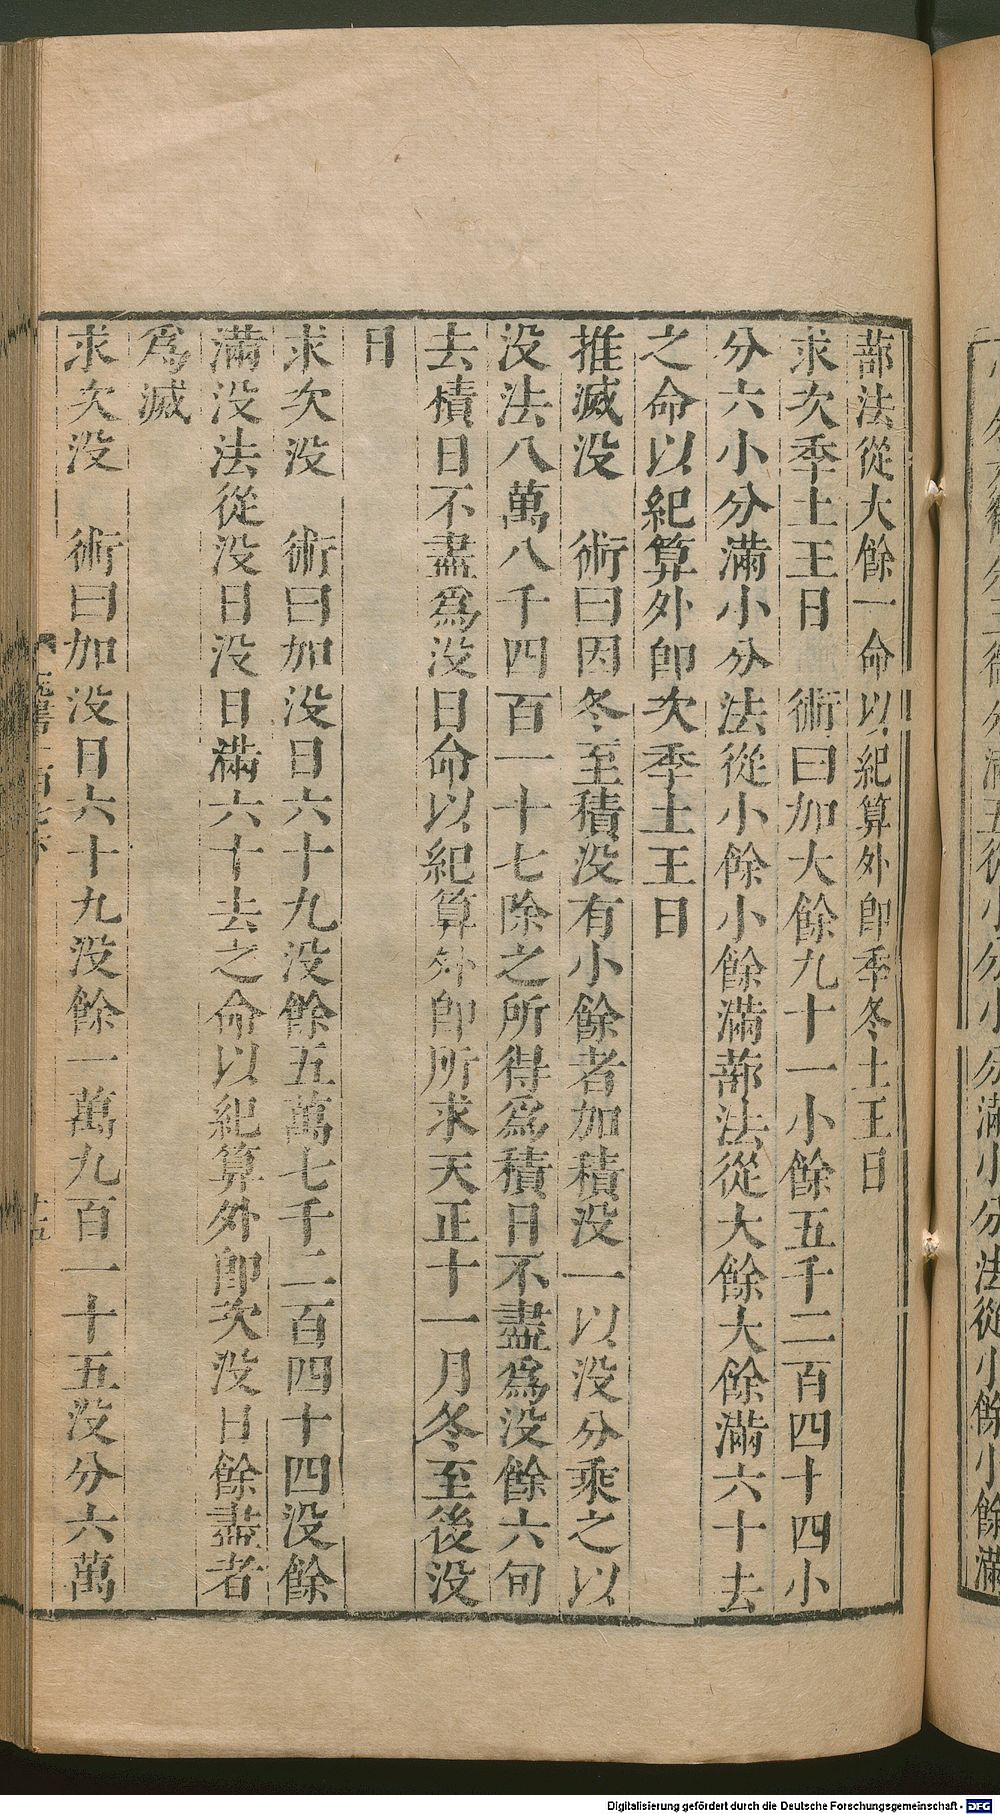 蔀法從大餘一命以紀算外卽季冬土王日
求次季土王日　術曰加大餘九十一小餘五千二百四十四小
分六小分滿小分法從小餘小餘滿蔀法從大餘大餘滿六十去
之命以紀算外卽次季土王日
推滅没　術曰因冬至積没有小餘者加積没一以没分乘之以
没法八萬八千四百一十七除之所得爲積日不盡爲没餘六旬
去積日不盡爲没日命以紀算外卽所求天正十一月冬至後没
日
求次没　術曰加没日六十九没餘五萬七千二百四十四没餘
滿没法從没日没日滿六十去之命以紀算外卽次没日餘盡者
爲滅
求次没　術曰加没日六十九没餘一萬九百一十五没分六萬
Digitalisierung gefördert durch die Deutsche Forschungsgemeinschaft - DFG